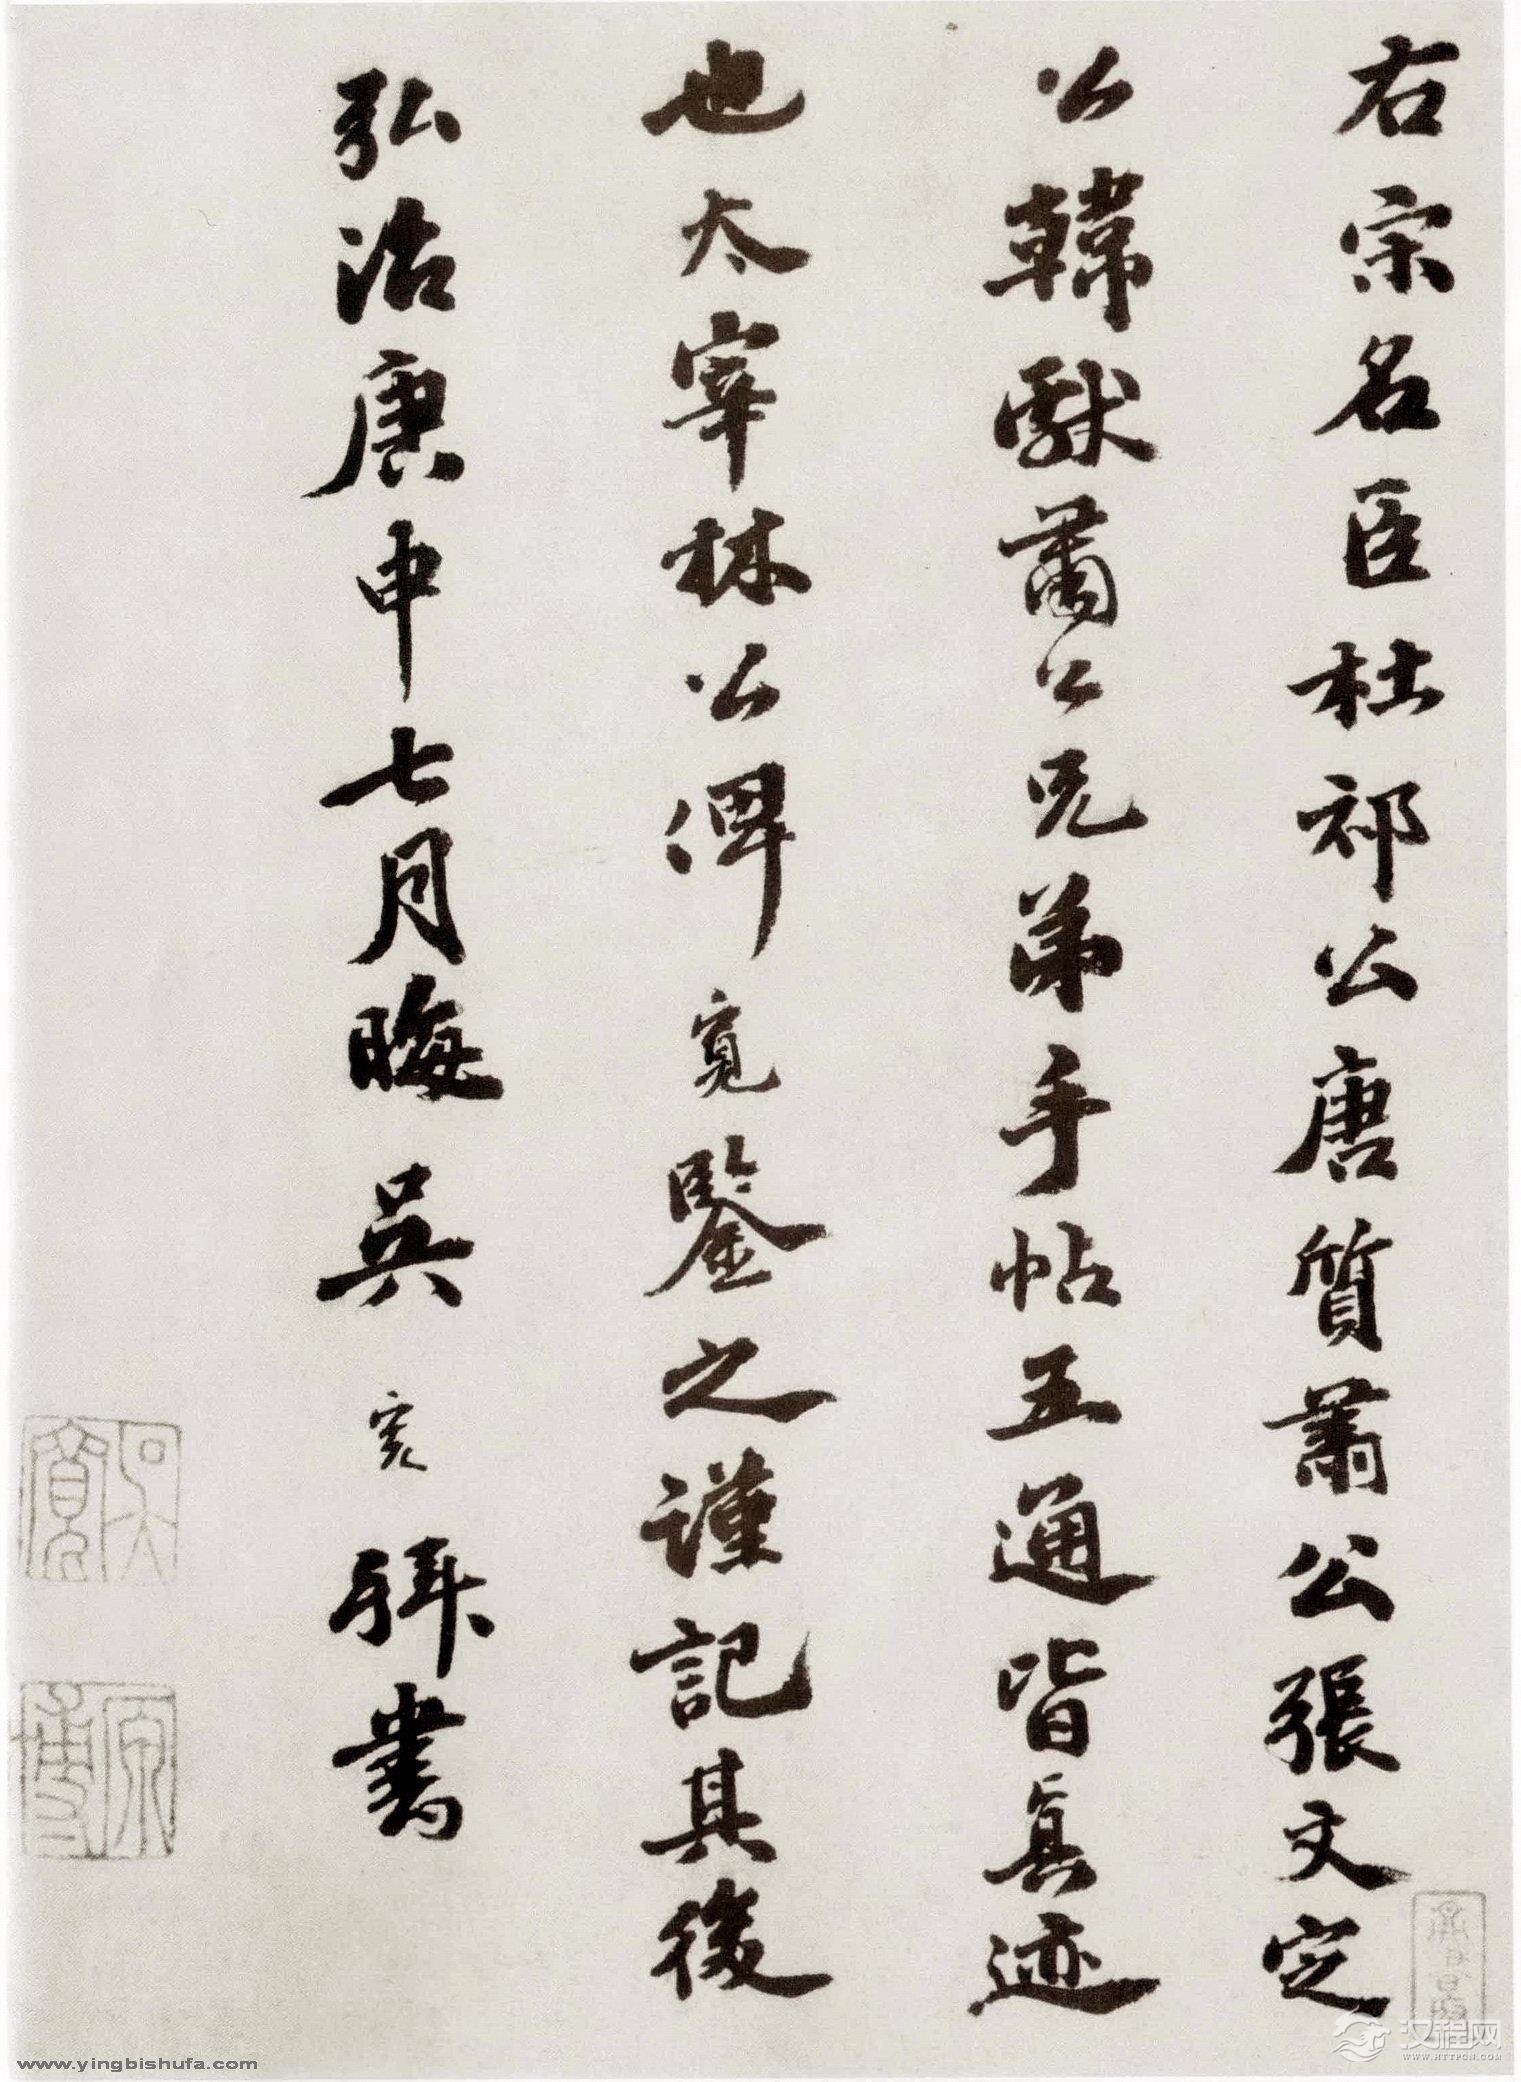 右宋名臣杜祁公唐質肅公張文定
公韓獻肅公兄弟手帖五通皆真迹
也太宰林公俾寬鑒之謹記其後
弘治庚申七月晦吳寬拜書
吳寬
原博
www.yingbishufa.com
汉程网
WWW.HTTPCN.COM